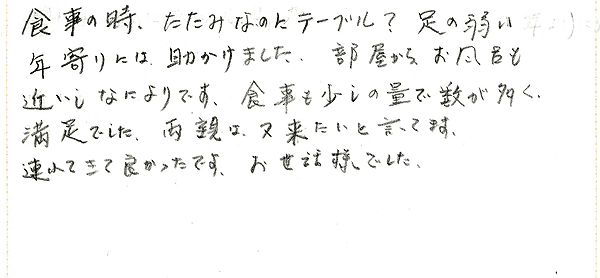 食事の時、たたみなのにテーブル? 足の弱い
年寄りには助かりました。部屋からお風呂も
近いしなによりです。食事も少しの量で数が多く、
満足でした。両親は又来たいと言ってます。
連れてきて良かったです。お世話様でした。